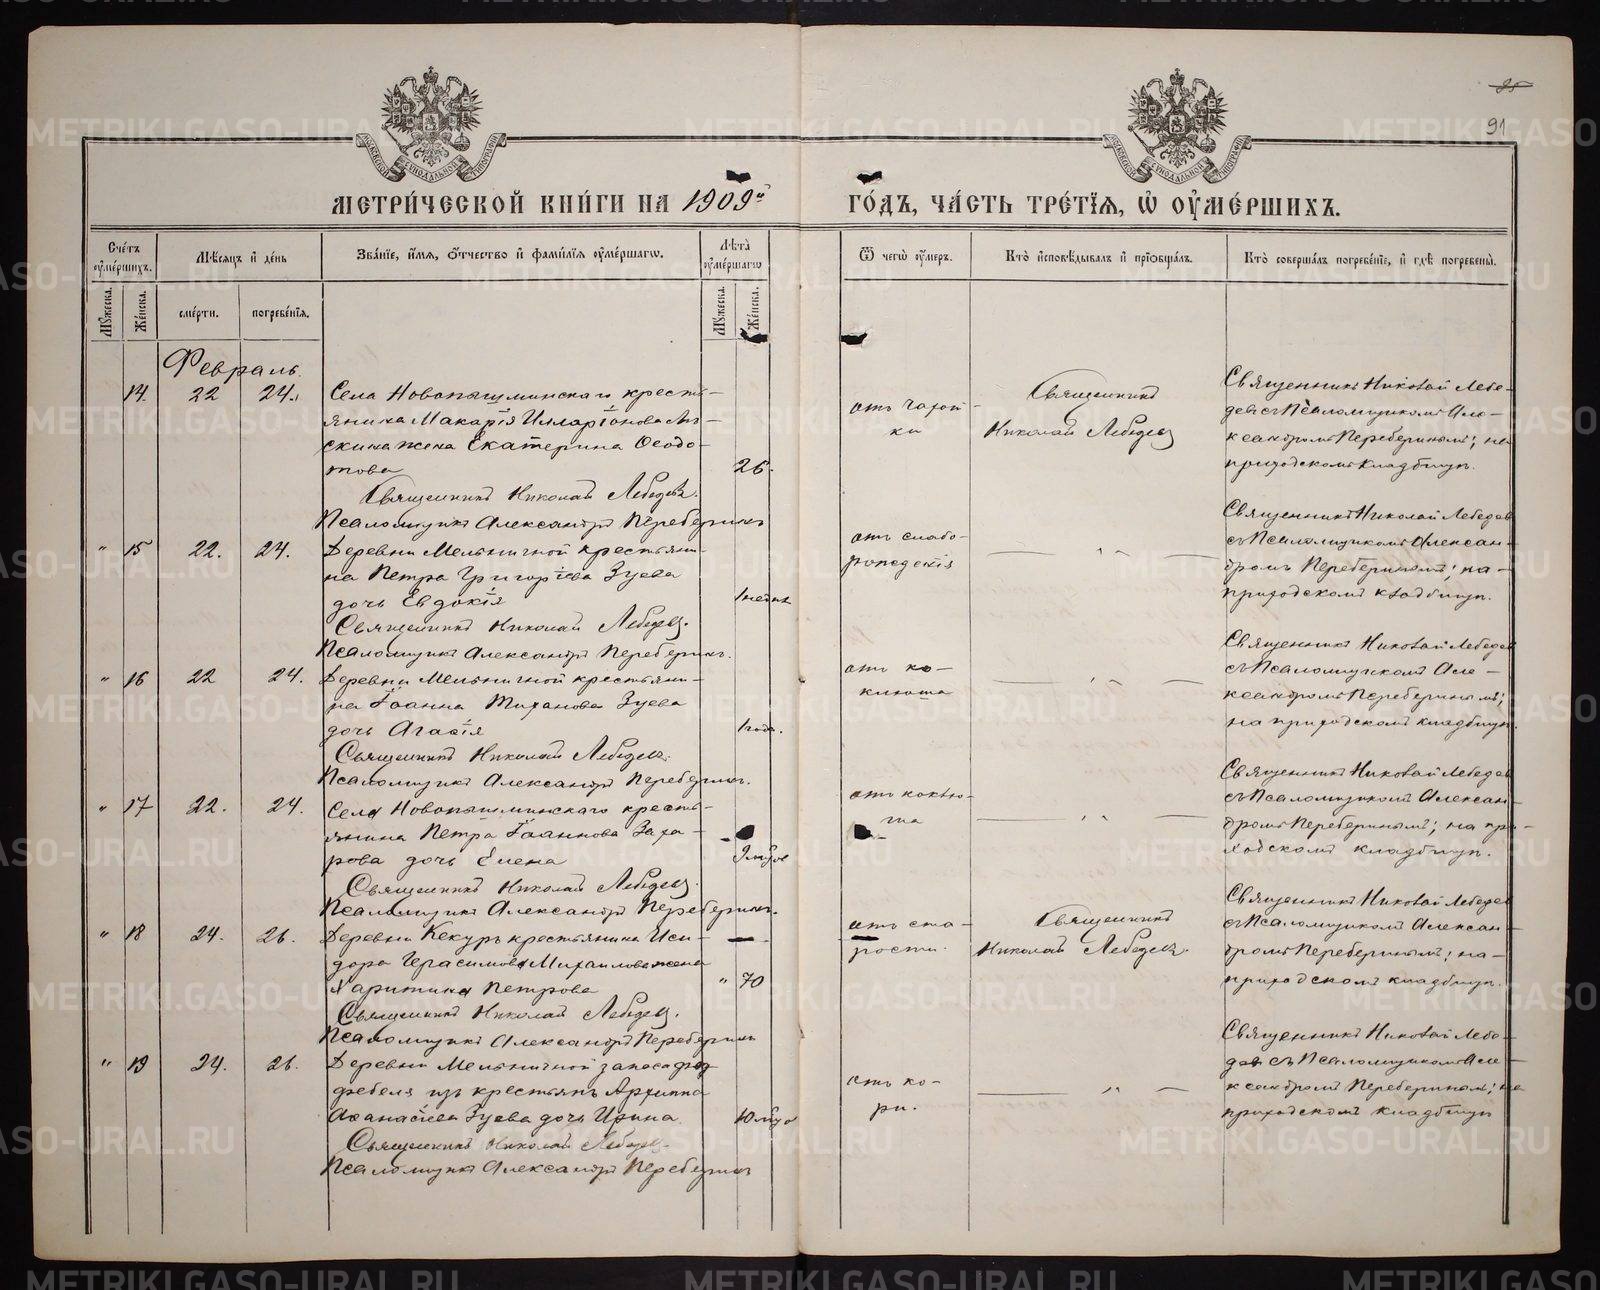 91
МЕТРИ́ЧЕСКОЙ КНИ́ГИ НА 1909й ГО́ДЪ, ЧА́СТЬ ТРЕ́ТІЯ, Ѡ ОУМЕ́РШИХЪ.
Счетъ оумершихъ.
Мѣсяцъ и день
Званіе, имя, отчество и фамилія оумершагѡ.
Лѣта оумершагѡ
Ѿ чегѡ оумеръ.
Кто исповѣдывалъ и пріобщалъ.
Кто совершалъ погребеніе, и гдѣ погребены.
Мужеска.
Женска.
смерти.
погребенія.
Мужеска.
Женска.
Февраль.
14. 22 24.
Села Новопышминскаго кресть-
янина Макарія Илларіонова
жена Екатерина Ѳеодо-
това
26.
Священникъ Николай Лебедевъ.
Псаломщикъ Александръ Переберинъ
отъ чахот-
ки
Священникъ
Николай Лебедевъ
Священникъ Николай Лебе-
девъ съ Псаломщикомъ Але-
ксандромъ Переберинымъ; на
приходскомъ кладбищѣ.
" 15 22. 24.
Деревни Мельничной крестьяни-
на Петра Григоріева Зуева
дочь Евдокія
Священникъ Николай Лебедевъ.
Псаломщикъ Александръ Переберинъ.
отъ слабо-
рожденія
— " —
Священникъ Николай Лебедевъ
съ Псаломщикомъ Алексан-
дромъ Переберинымъ; на-
приходскомъ кладбищѣ.
" 16 22 24.
Деревни Мельничной крестьяни-
на Іоанна Зуева
дочь Агафія
1 годъ.
Священникъ Николай Лебедевъ.
Псаломщикъ Александръ Переберинъ.
отъ ко-
клюша
— " —
Священникъ Николай Лебедевъ
съ Псаломщикомъ Але-
ксандромъ Переберинымъ;
на приходскомъ кладбищѣ.
" 17 22. 24.
Села Новопышминскаго кресть-
янина Петра Іоаннова Заха-
рова дочь Елена
Священникъ Николай Лебедевъ.
Псаломщикъ Александръ Переберинъ.
отъ коклю-
ша
— " —
Священникъ Николай Лебедевъ
съ Псаломщикомъ Алексан-
дромъ Переберинымъ; на при-
ходскомъ кладбищѣ.
" 18 24. 26.
Деревни Кекуръ крестьянина Иси-
дора Герасимова Михаилова жена
Харитина Петрова
" 70
Священникъ Николай Лебедевъ.
Псаломщикъ Александръ Переберинъ
отъ ста-
рости.
Священникъ
Николай Лебедевъ.
Священникъ Николай Лебедевъ
съ Псаломщикомъ Алексан-
дромъ Переберинымъ; на-
приходскомъ кладбищѣ.
" 19 24. 26.
Деревни Мельничной запас.
фебеля изъ крестьянъ Архиппа
Аѳанасіева Зуева дочь Ирина
Священникъ Николай Лебедевъ.
Псаломщикъ Александръ Переберинъ
отъ ко-
ри.
— " —
Священникъ Николай Лебе-
девъ съ Псаломщикомъ Але-
ксандромъ Переберинымъ; на
приходскомъ кладбищѣ
METRIKI.GASO-URAL.RU